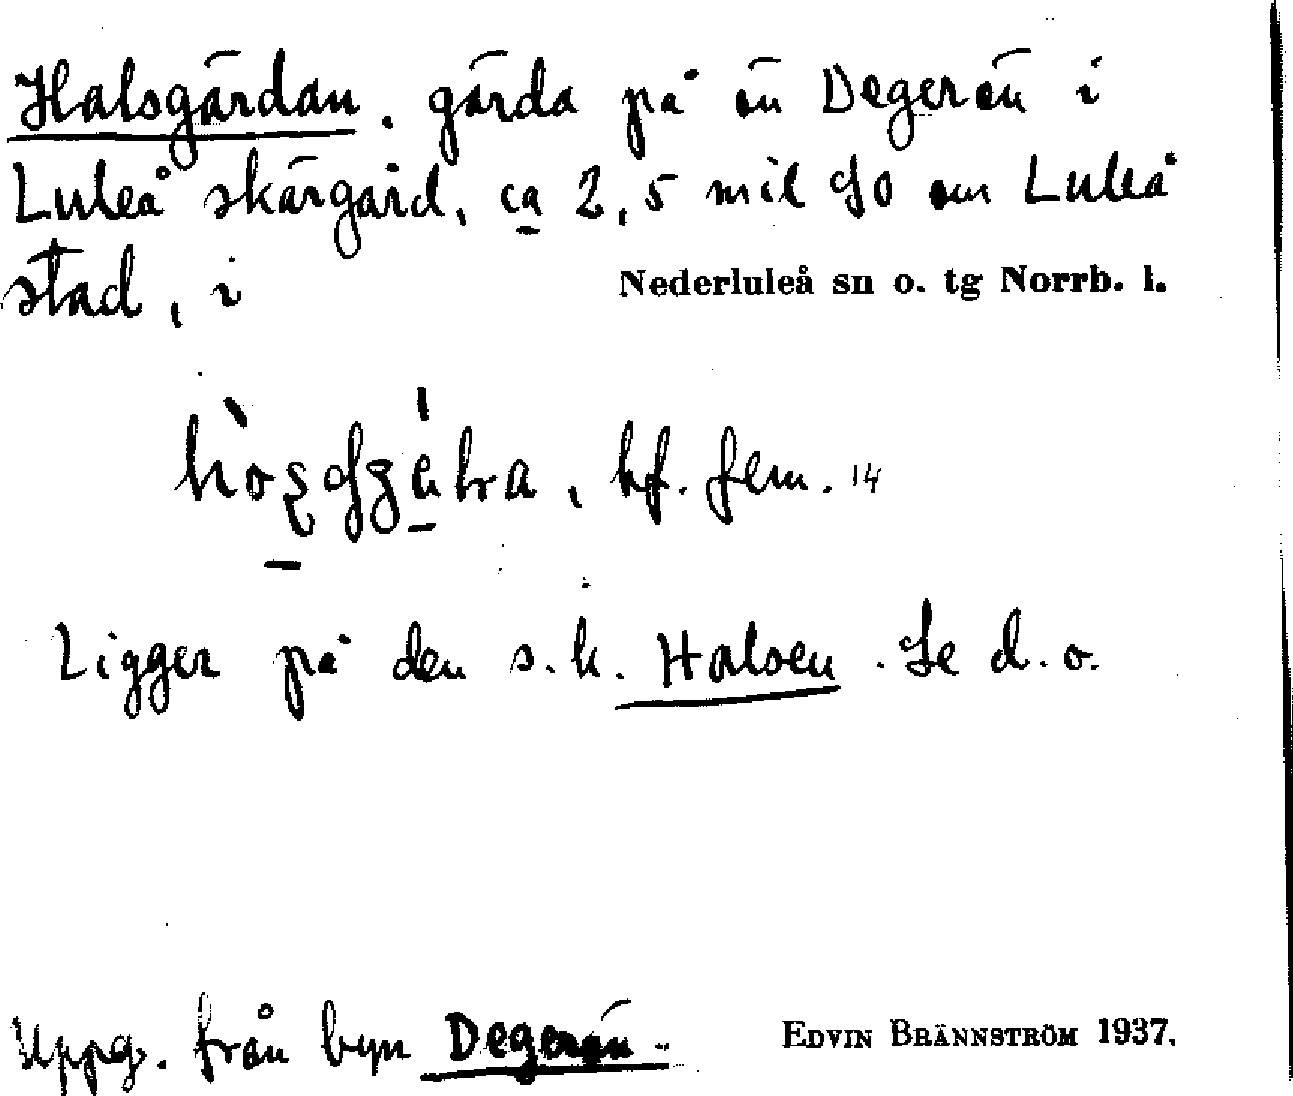 Halsgärdan. gärda på ön Degerön i
Luleå skärgård, ca 2,5 mil SO om Luleå
stad, i Nederluleå sn o. tg Norrb. l.
bf. fem. 14
Ligger på den s.k. Halsen. Se d.o.
Uppg. från byn Degerön. EDVIN BRÄNNSTRÖM 1937.